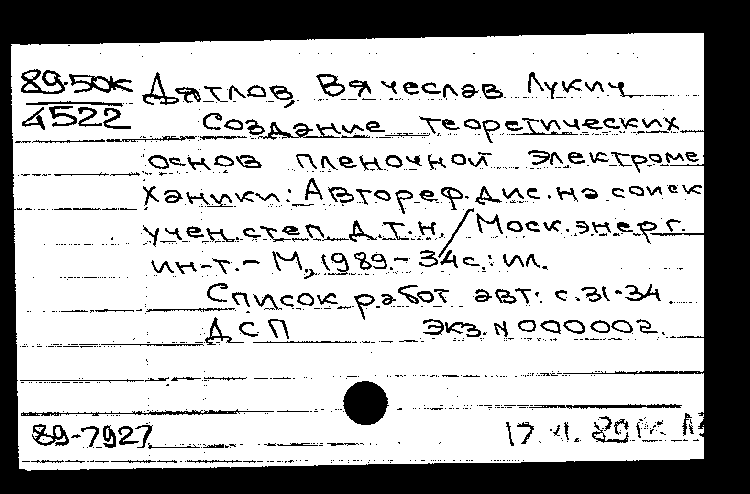 89-50к Дятлов, Вячеслав Лукич
4522 Создание теоретических
основ пленочной электроме
ханики: Автореф. дис. на соиск
учен. степ. д.т.н. / Моск. энерг.
ин-т. - М., 1989. - 34с.: ил.
Список работ авт: с. 31-34
ДСП экз. N 000002.
89-7927 17. 89